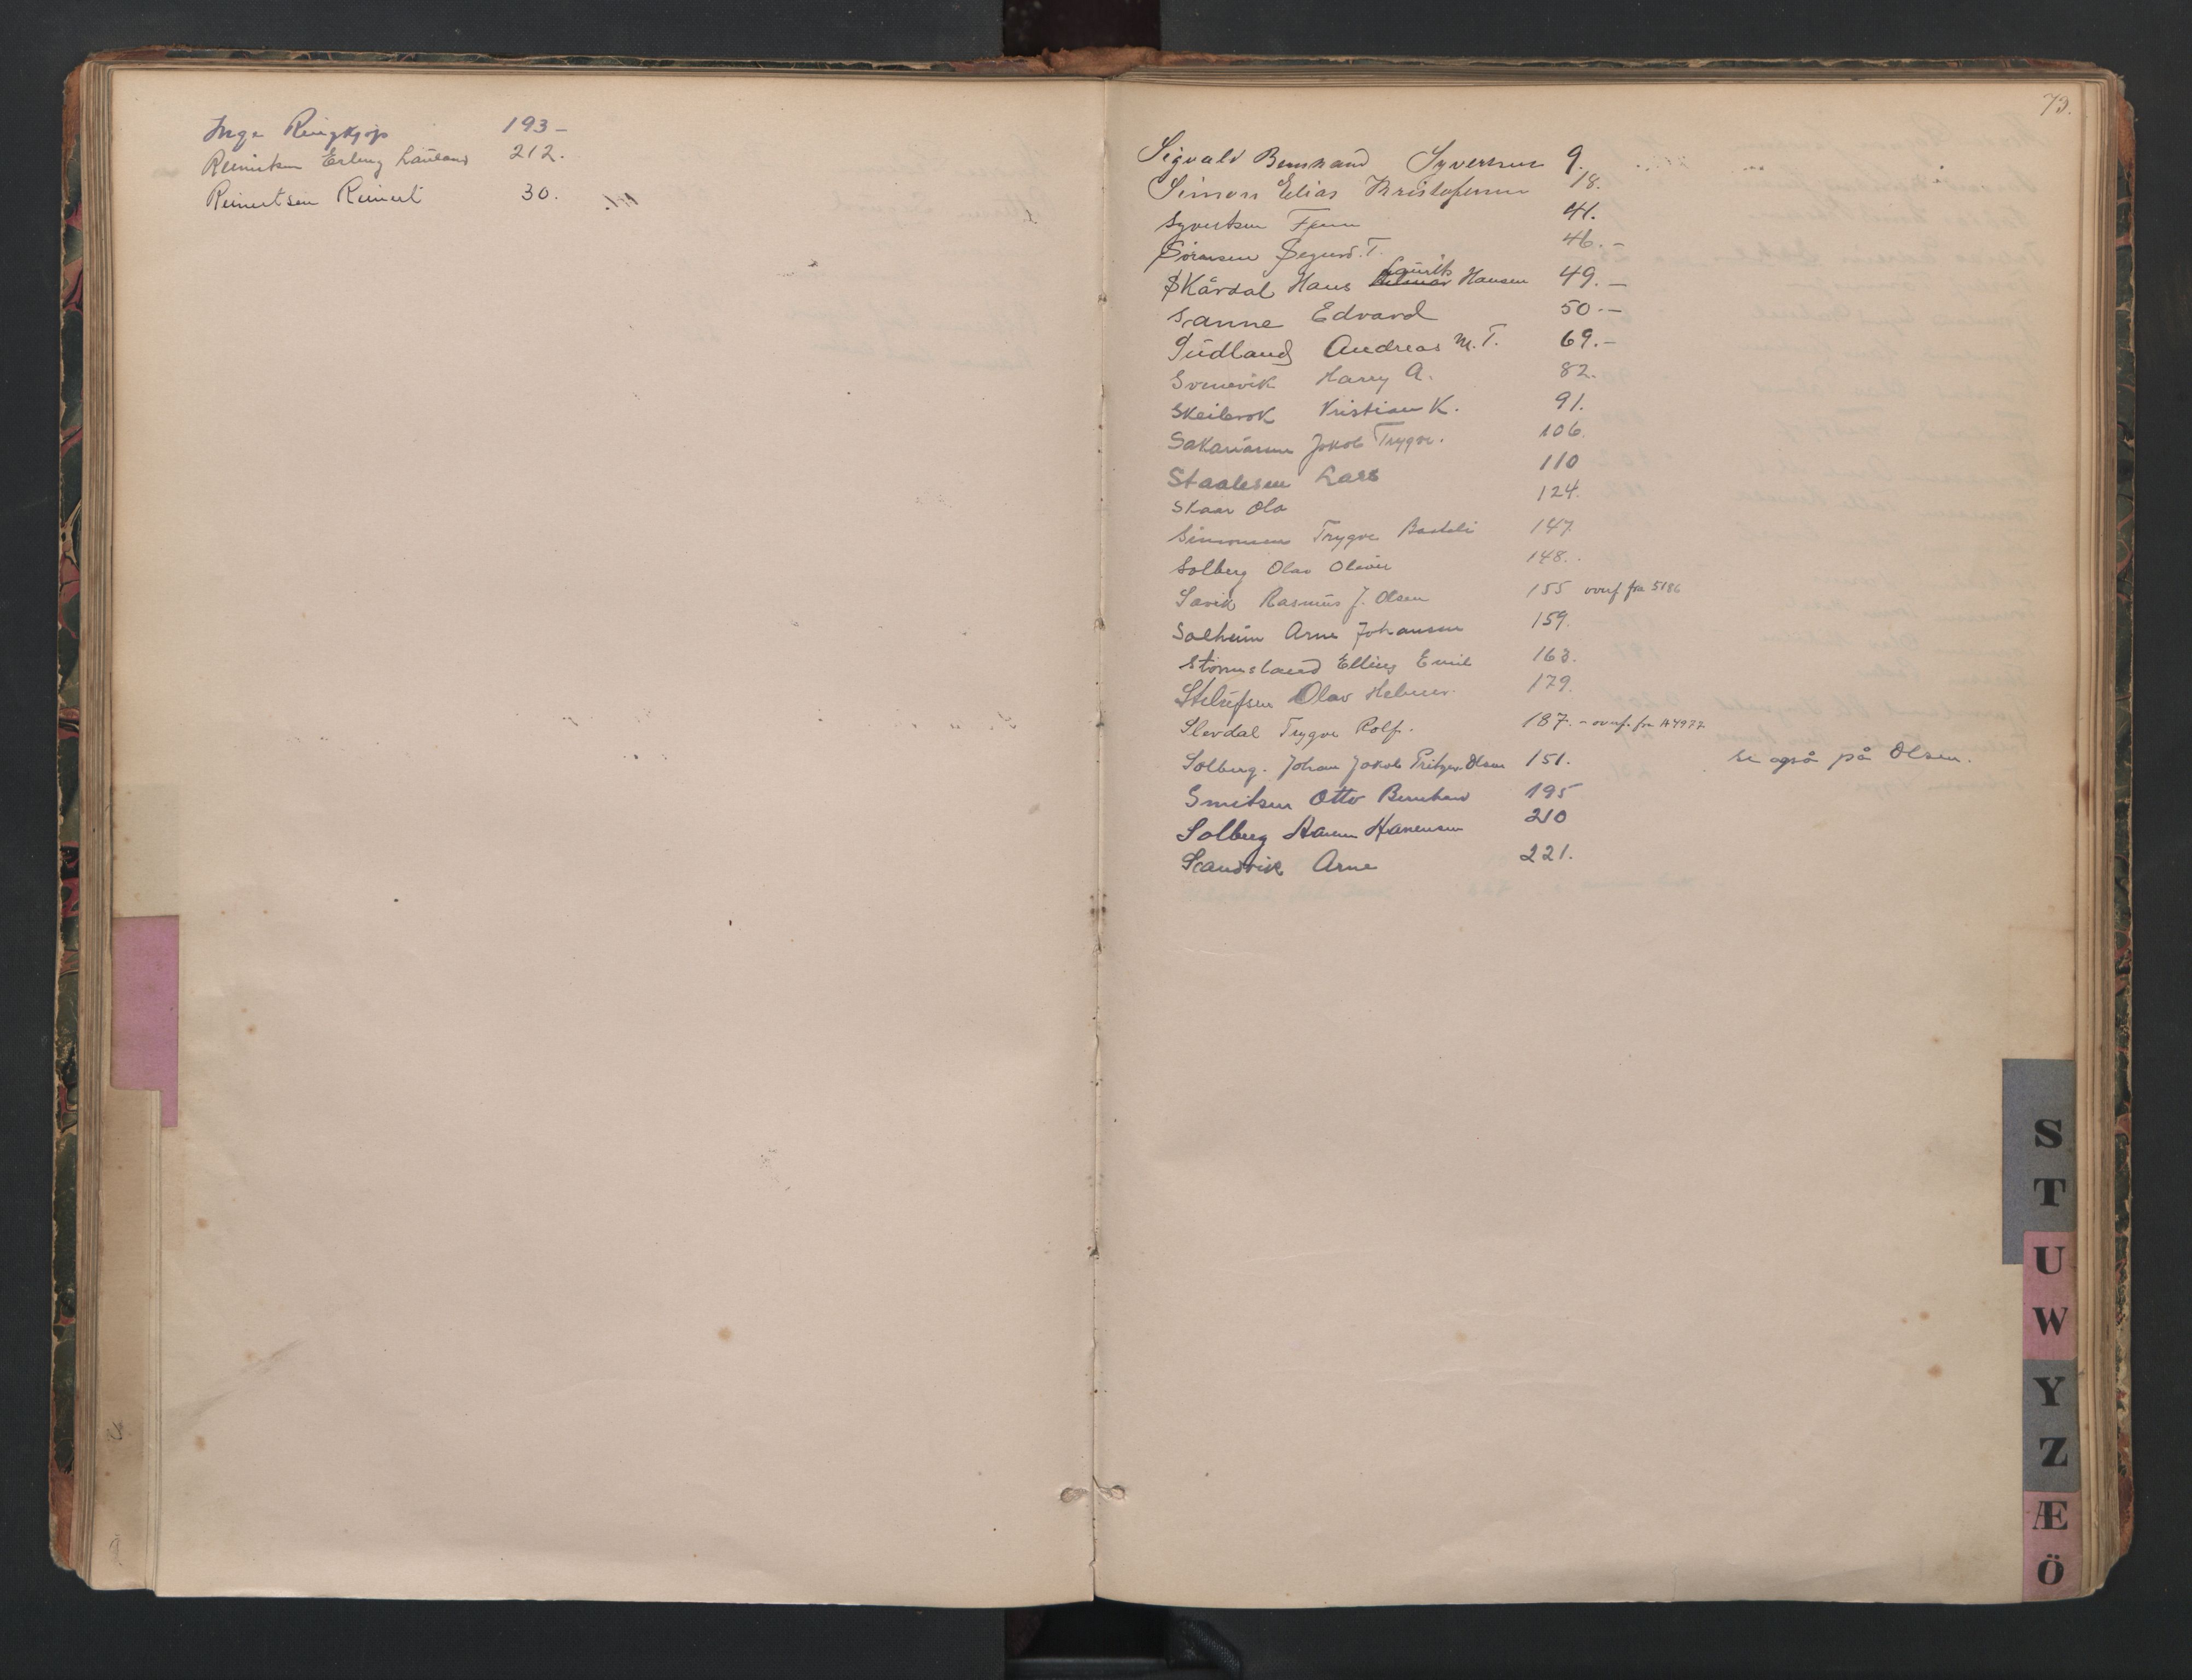 Inga Ringkjøp 193 –
Reinertsen Erling Lauland 212.
Reinertsen Reinert 30.
73.
Sigvald Bernhard Syversen 9.
Simon Elias Kristofersen 18.
Syvertsen Finn 41.
Sörensen Sigurd. T. 46. –
Skårdal Hans Laurits Hansen 49. –
Sanne Edvard 50. –
Sudland Andreas M. T. 69. –
Svenevik Harry A. 82.
Skeibrok Kristian K. 91.
Sakariassen Jakob Trygve. 106.
Staalesen Lars 110
Skaar Ola 124.
Simonsen Trygve 147
Solberg Olav Oliver 148.
Savik Rasmus J. Olsen 155 overf fra 5186
Solheim Arne Johansen 159.
Stömsland Elling Emil 163.
Olav Helmer. 179.
Slevdal Trygve Rolf. 187. – overf. fra A4977
Solberg. Johan Jakob Olsen 151. se også på Olsen.
Smitsen Otto Bernhard 195
Solberg Hansen 210
Sandvik Arne 221.
S
T
U
W
Y
Z
Æ
Ö